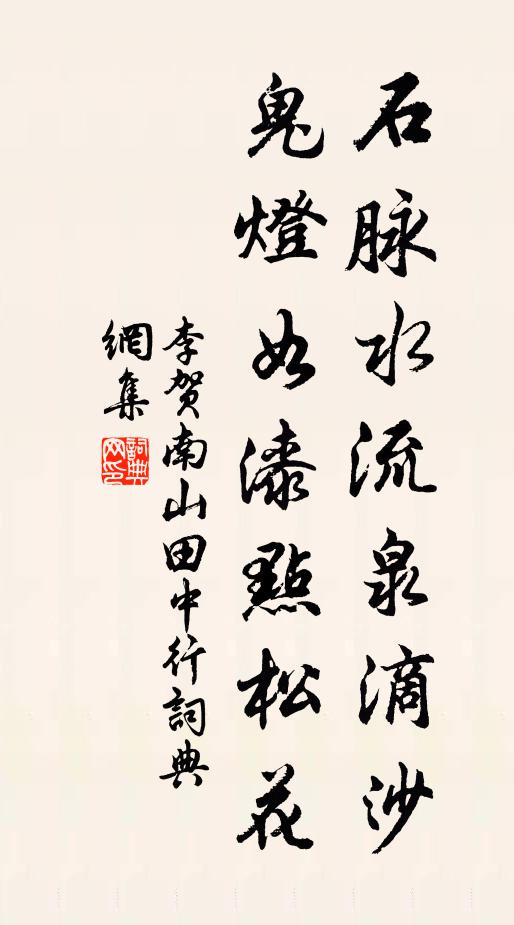 石脉水流泉滴沙
鬼燈如漆點松花
李賀南山田中行詞典
網集
詞典
网印